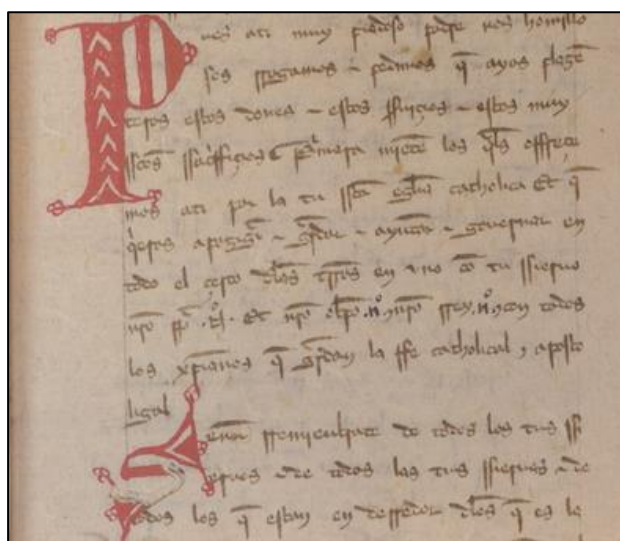 Pues ati muy piadoso padre nos homillo
sos rrogamos e pedimos q̄ ayas plazē
teros estos dones e estos s̄uiçios e estos muy
ss̄tos ssac̄ffiçios P̄mera miētē los q̄les offreçe
mos ati por la tu ss̄ta egl̄ia catholica Et q̄
q̄eras apaziguar e gͣrdar e ayūtar e gouernar en
todo el çerco dlas trr̄as en vno cō tu ssieruo
nr̄o pp̄ .N. Et nr̄o obp̄o .nº. y nr̄o rrey .nº. y con todos
los xp̄ianos q̄ gͣrdan la ffe catholical y aposto
ligal
Senor rremienbrate de todos los tus ssi
eruos e de todas las tus ssieruas e de
todos los q̄ estan en derredor dlos q̄ es le